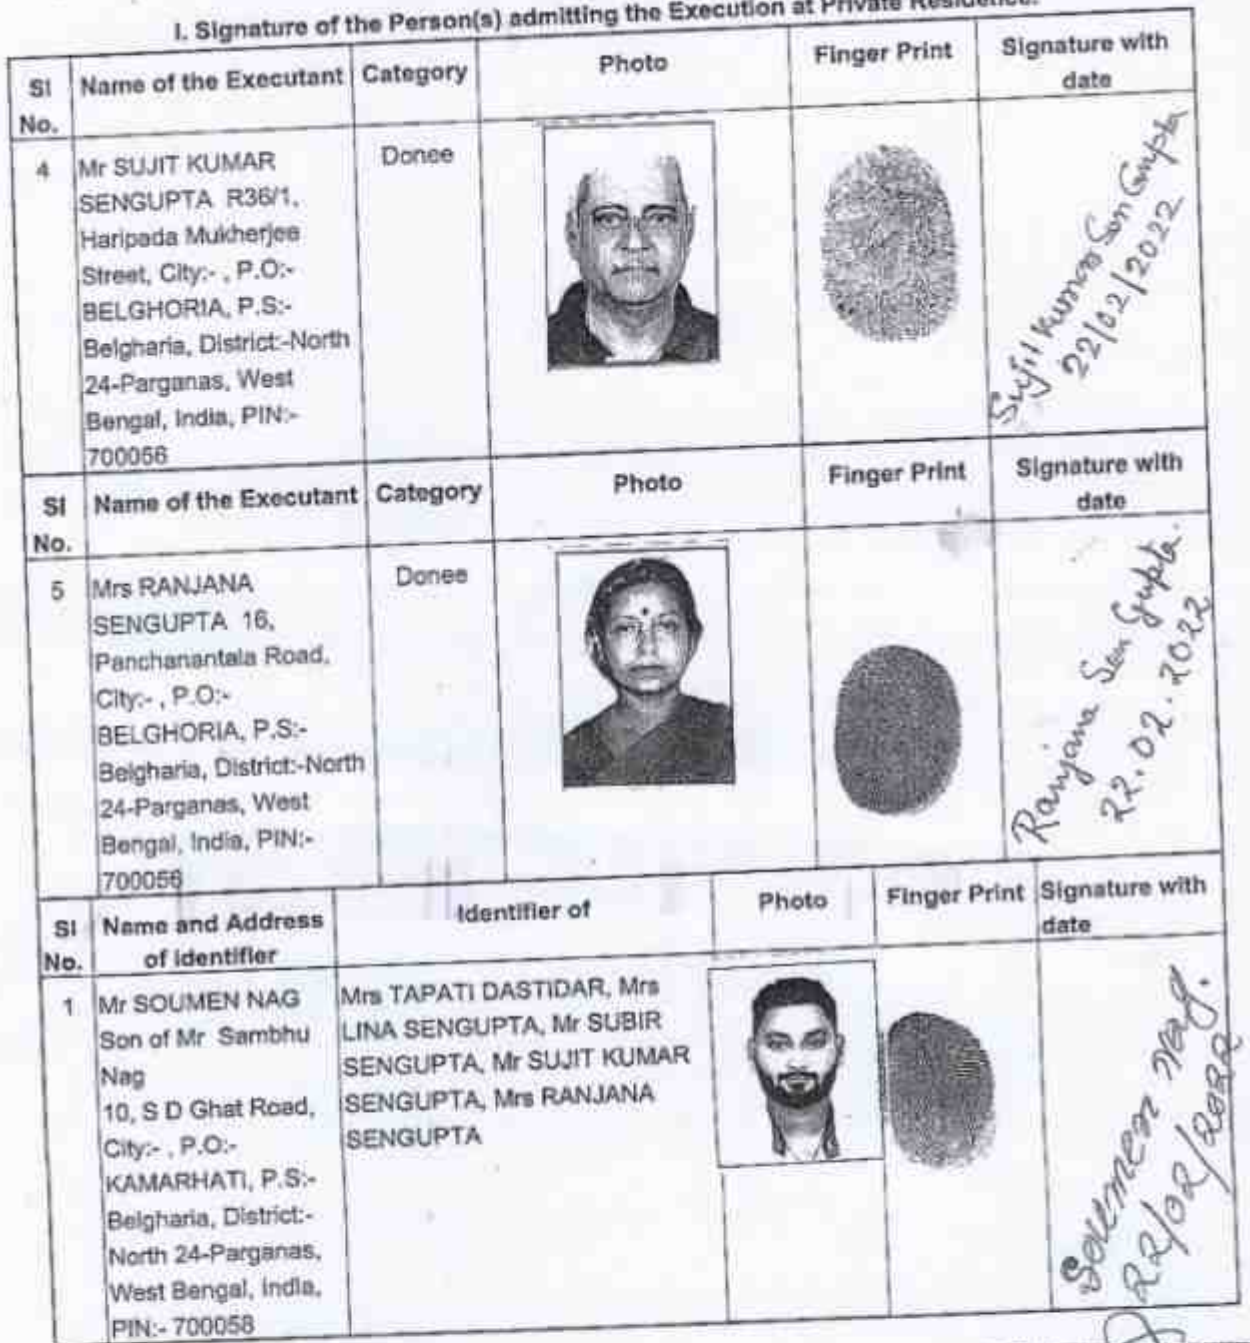 I. Signature of the Person(s) admitting the Execution at Private Residence.
Sl No. Name of the Executant Category Photo Finger Print Signature with date
4 Mr SUJIT KUMAR SENGUPTA R36/1, Donee
Haripada Mukherjee
Street, City:- , P.O:-
BELGHORIA, P.S:-
Belgharia, District:-North
24-Parganas, West
Bengal, India, PIN:-
700056
Sujit Kumar Sen Gupta
22/02/2022
Sl No. Name of the Executant Category Photo Finger Print Signature with date
5 Mrs RANJANA Donee
SENGUPTA 16,
Panchanantala Road,
City:- , P.O:-
BELGHORIA, P.S:-
Belgharia, District:-North
24-Parganas, West
Bengal, India, PIN:-
700056
Ranjana Sen Gupta.
22.02.2022
Sl No. Name and Address of identifier Identifier of Photo Finger Print Signature with date
1 Mr SOUMEN NAG
Son of Mr Sambhu
Nag
10, S D Ghat Road,
City:- , P.O:-
KAMARHATI, P.S:-
Belgharia, District:-
North 24-Parganas,
West Bengal, India,
PIN:- 700058
Mrs TAPATI DASTIDAR, Mrs
LINA SENGUPTA, Mr SUBIR
SENGUPTA, Mr SUJIT KUMAR
SENGUPTA, Mrs RANJANA
SENGUPTA
Soumen Nag.
22/02/2022